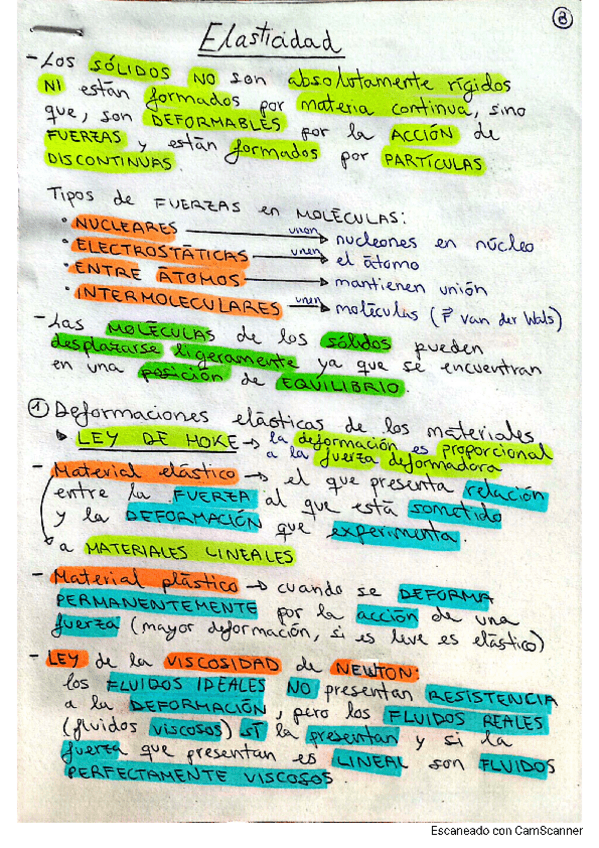 8
Elasticidad
- Los SÓLIDOS NO son absolutamente rígidos
NI están formados por materia continua, sino
que, son DEFORMABLES por la ACCIÓN de
FUERZAS y están formados por PARTÍCULAS
DISCONTINUAS.
Tipos de FUERZAS en MOLÉCULAS:
· NUCLEARES unen→ nucleones en núcleo
· ELECTROSTÁTICAS unen→ el átomo
· ENTRE ÁTOMOS → mantienen unión
· INTERMOLECULARES unen→ moléculas (F van der Wals)
- Las MOLÉCULAS de los sólidos pueden
desplazarse ligeramente ya que se encuentran
en una posición de EQUILIBRIO.
① Deformaciones elásticas de los materiales
↳ LEY DE HOKE → la deformación es proporcional
a la fuerza deformadora
- Material elástico → el que presenta relación
entre la FUERZA al que está sometido
y la DEFORMACIÓN que experimenta.
a MATERIALES LINEALES
- Material plástico → cuando se DEFORMA
PERMANENTEMENTE por la acción de una
fuerza (mayor deformación, si es leve es elástico)
- LEY de la VISCOSIDAD de NEWTON:
los FLUIDOS IDEALES NO presentan RESISTENCIA
a la DEFORMACIÓN, pero los FLUIDOS REALES
(fluidos viscosos) SÍ la presentan y si la
fuerza que presentan es LINEAL son FLUIDOS
PERFECTAMENTE VISCOSOS.
Escaneado con CamScanner